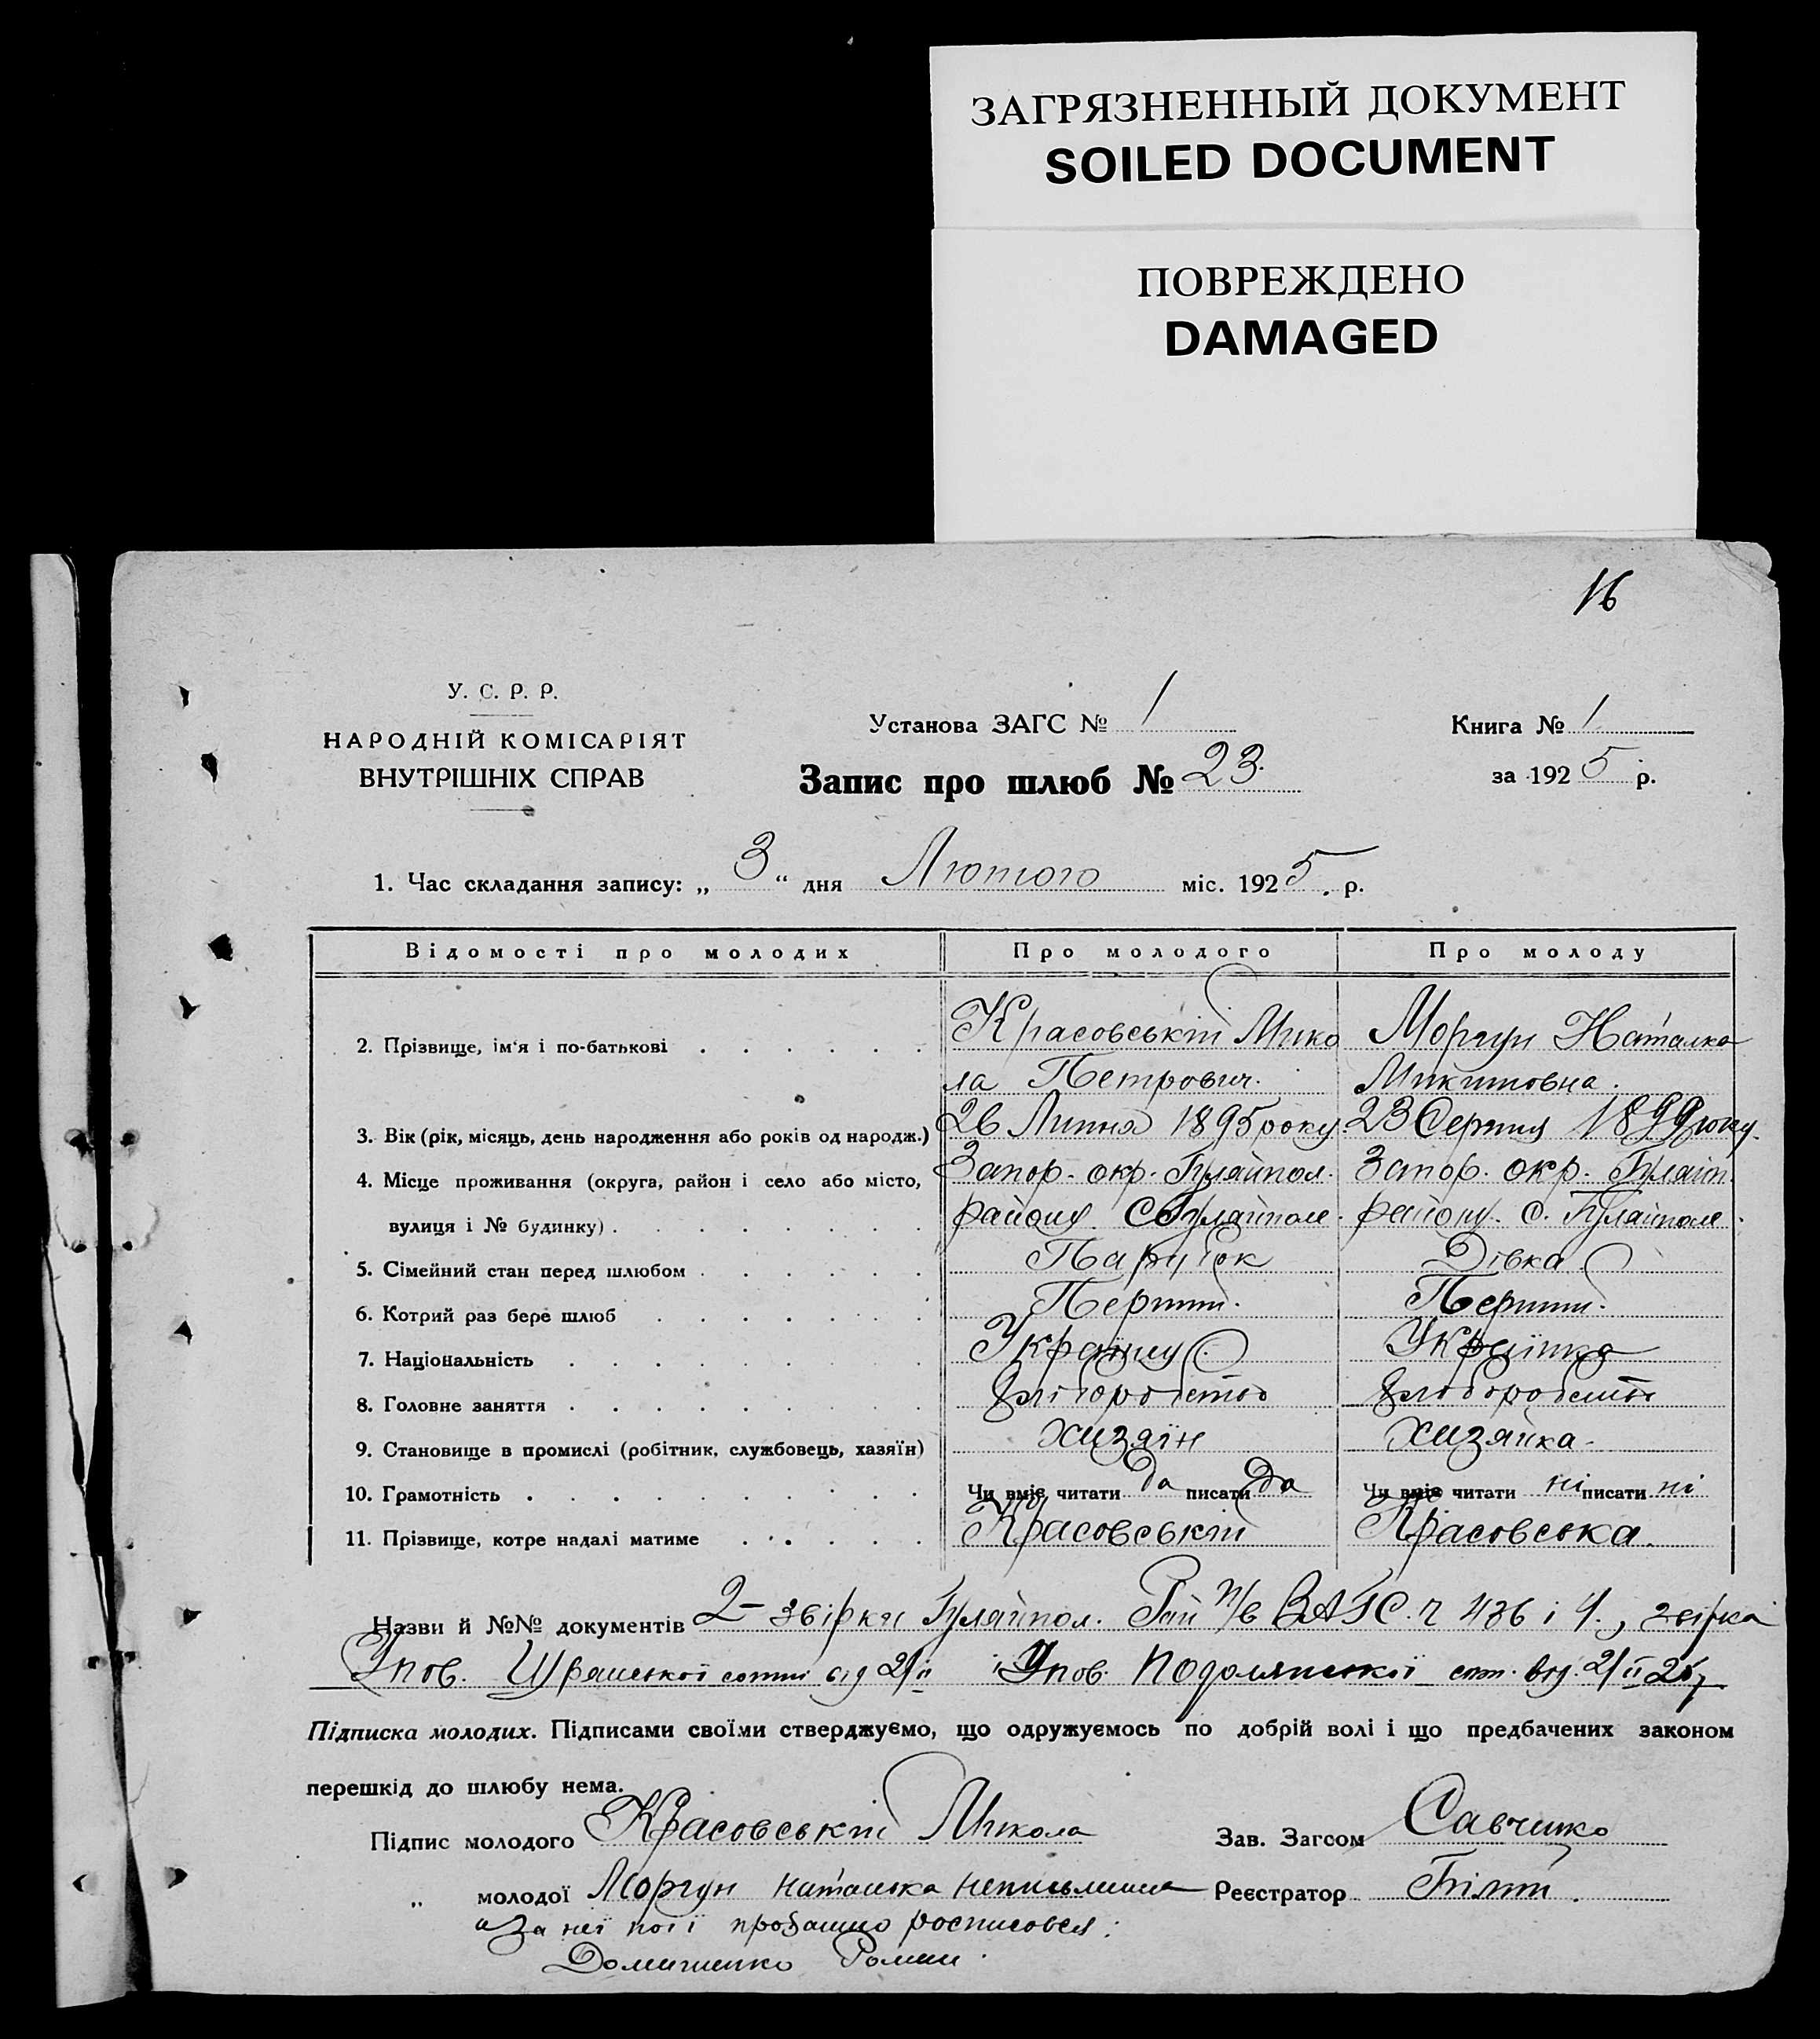 ЗАГРЯЗНЕННЫЙ ДОКУМЕНТ
SOILED DOCUMENT
ПОВРЕЖДЕНО
DAMAGED
16
У. С. Р. Р.
НАРОДНІЙ КОМІСАРІЯТ
ВНУТРІШНІХ СПРАВ
Установа ЗАГС № 1
Книга № 1
Запис про шлюб № 23.
за 1925 р.
1. Час складання запису: „ 3 “ дня Лютого міс. 1925. р.
Відомості про молодих Про молодого Про молоду
2. Прізвище, ім'я і по-батькові Красовській Мико Моргун Наталка
ла Петрович. Микитовна.
3. Вік (рік, місяць, день народження або років од народж.) 26 Липня 1895 року. 23 Серпня 1899 року.
4. Місце проживання (округа, район і село або місто, Запор. окр. Гуляйпол. Запор. окр. Гуляйп.
вулиця і № будинку) району. С Гуляйполе. району. с. Гуляйполе.
5. Сімейний стан перед шлюбом Парубок Дівка
6. Котрий раз бере шлюб Перший. Перший.
7. Національність Українець Українка
8. Головне заняття Хліборобство Хлоборобство
9. Становище в промислі (робітник, службовець, хазяїн) Хизяїн Хизяйка
10. Грамотність Чи вміє читати да писати да Чи вміє читати ні писати ні
11. Прізвище, котре надалі матиме Красовській Красовська.
Назви й №№ документів 2 – звірки Гуляйпол. Рай п/в ЗАГС. ч 436 і 4., звірка
Упов. сотні від 2/II і Упов. Подолянської сот. від. 2/II 25
Підписка молодих. Підписами своїми стверджуємо, що одружуємось по добрій волі і що предбачених законом
перешкід до шлюбу нема.
Підпис молодого Красовській Микола Зав. Загсом Савченко
„ молодої Моргун Наталка неписьменна Реєстратор Білий.
а за неї по її проханню росписовся:
Домашенко Роман.